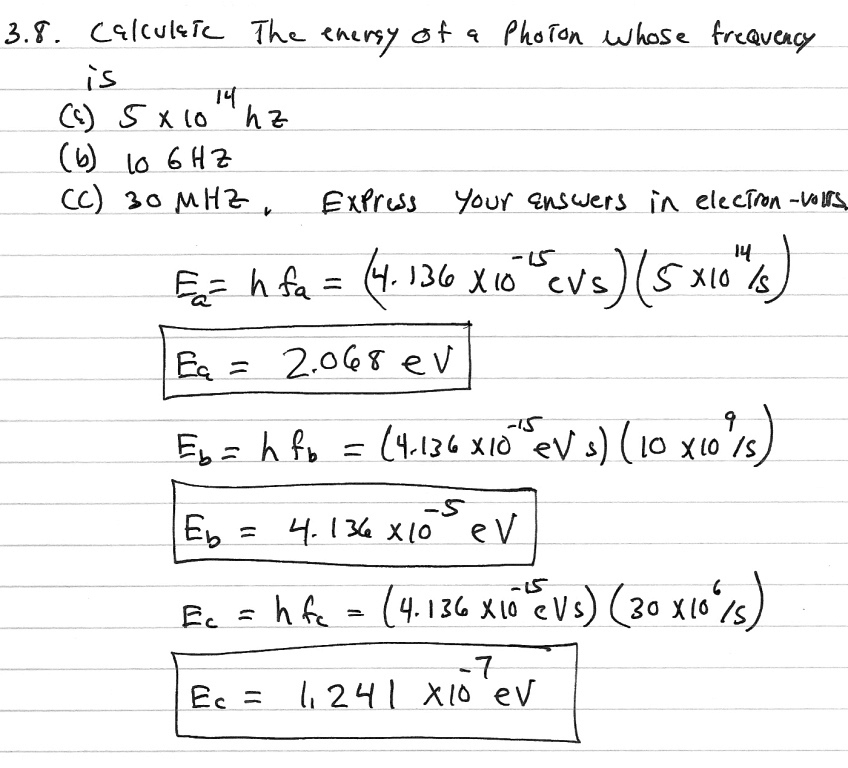 3.8. Calculate The energy of a Photon whose frequency
is
(a) 5 x 10^14 hz
(b) 10 GHZ
(c) 30 MHZ, Express Your answers in electron-volts.
E_a = h f_a = (4.136 x10^-15 eVs)(5 x10^14 /s)
E_a = 2.068 eV
E_b = h f_b = (4.136 x10^-15 eV s)(10 x10^9 /s)
E_b = 4.136 x10^-5 eV
E_c = h f_c = (4.136 x10^-15 eVs)(30 x10^6 /s)
E_c = 1.241 x10^-7 eV